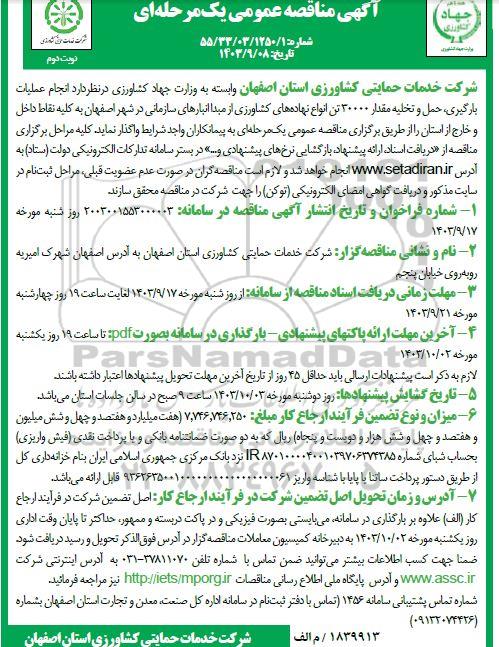 آگهی مناقصه عمومی یک‌مرحله‌ای
شماره: ۵۵/۳۳/۰۳/۱۲۵۰/۱
تاریخ: ۱۴۰۳/۹/۰۸
جهاد کشاورزی
وزارت جهاد کشاورزی
شرکت خدمات حمایتی کشاورزی
نوبت دوم
شرکت خدمات حمایتی کشاورزی استان اصفهان وابسته به وزارت جهاد کشاورزی درنظر دارد انجام عملیات
بارگیری، حمل و تخلیه مقدار ۳۰۰۰۰ تن انواع نهاده‌های کشاورزی از مبدا انبارهای سازمانی در شهر اصفهان به کلیه نقاط داخل
و خارج از استان را از طریق برگزاری مناقصه عمومی یک‌مرحله‌ای به پیمانکاران واجد شرایط واگذار نماید. کلیه مراحل برگزاری
مناقصه از «دریافت اسناد، ارائه پیشنهاد، بازگشایی نرخ‌های پیشنهادی و...» در بستر سامانه تدارکات الکترونیکی دولت (ستاد) به
آدرس www.setadiran.ir انجام خواهد شد و لازم است مناقصه‌گران در صورت عدم عضویت قبلی، مراحل ثبت‌نام در
سایت مذکور و دریافت گواهی امضای الکترونیکی (توکن) را جهت شرکت در مناقصه محقق سازند.
۱- شماره فراخوان و تاریخ انتشار آگهی مناقصه در سامانه: ۲۰۰۳۰۰۱۵۵۳۰۰۰۰۰۳ روز شنبه مورخه
۱۴۰۳/۹/۱۷
۲- نام و نشانی مناقصه‌گزار: شرکت خدمات حمایتی کشاورزی استان اصفهان به آدرس اصفهان شهرک امیریه
روبه‌روی خیابان پنجم
۳- مهلت زمانی دریافت اسناد مناقصه از سامانه: از روز شنبه مورخه ۱۴۰۳/۹/۱۷ لغایت ساعت ۱۹ روز چهارشنبه
مورخه ۱۴۰۳/۹/۲۱
۴- آخرین مهلت ارائه پاکتهای پیشنهادی – بارگذاری در سامانه بصورت pdf: تا ساعت ۱۹ روز یکشنبه
مورخه ۱۴۰۳/۱۰/۰۲
لازم به ذکر است پیشنهادات ارسالی باید حداقل ۴۵ روز از تاریخ آخرین مهلت تحویل پیشنهادها اعتبار داشته باشند.
۵- تاریخ گشایش پیشنهادها: روز دوشنبه مورخه ۱۴۰۳/۱۰/۰۳ ساعت ۹ صبح در سالن جلسات استان می‌باشد.
۶- میزان و نوع تضمین فرآیند ارجاع کار مبلغ: ۷,۷۴۶,۷۴۶,۲۵۰ (هفت میلیارد و هفتصد و چهل و شش میلیون
و هفتصد و چهل و شش هزار و دویست و پنجاه) ریال که به دو صورت ضمانتنامه بانکی و یا پرداخت نقدی (فیش واریزی)
بحساب شبای شماره IR نزد بانک مرکزی جمهوری اسلامی ایران بنام خزانه‌داری کل
از طریق دستور پرداخت ساتنا یا پایا با شناسه واریز قابل ارائه می‌باشد.
۷- آدرس و زمان تحویل اصل تضمین شرکت در فرآیند ارجاع کار: اصل تضمین شرکت در فرآیند ارجاع
کار (الف) علاوه بر بارگذاری در سامانه، می‌بایستی بصورت فیزیکی و در پاکت دربسته و ممهور، حداکثر تا پایان وقت اداری
روز یکشنبه مورخه ۱۴۰۳/۱۰/۰۲ به دبیرخانه کمیسیون معاملات مناقصه‌گزار در آدرس فوق‌الذکر تحویل و رسید دریافت شود.
ضمنا جهت کسب اطلاعات بیشتر می‌توانید ضمن تماس با شماره تلفن ۳۷۸۱۱۰۷۰-۰۳۱ به آدرس اینترنتی شرکت
www.assc.ir و آدرس پایگاه ملی اطلاع رسانی مناقصات http://iets/mporg.ir نیز مراجعه فرمائید.
شماره تماس پشتیبانی سامانه ۱۴۵۶ (تماس با دفتر ثبت‌نام در سامانه اداره کل صنعت، معدن و تجارت استان اصفهان بشماره
۰۹۱۳۲۰۷۴۴۲۶)
۱۸۳۹۹۱۳ / م الف
شرکت خدمات حمایتی کشاورزی استان اصفهان
ParsNamadData